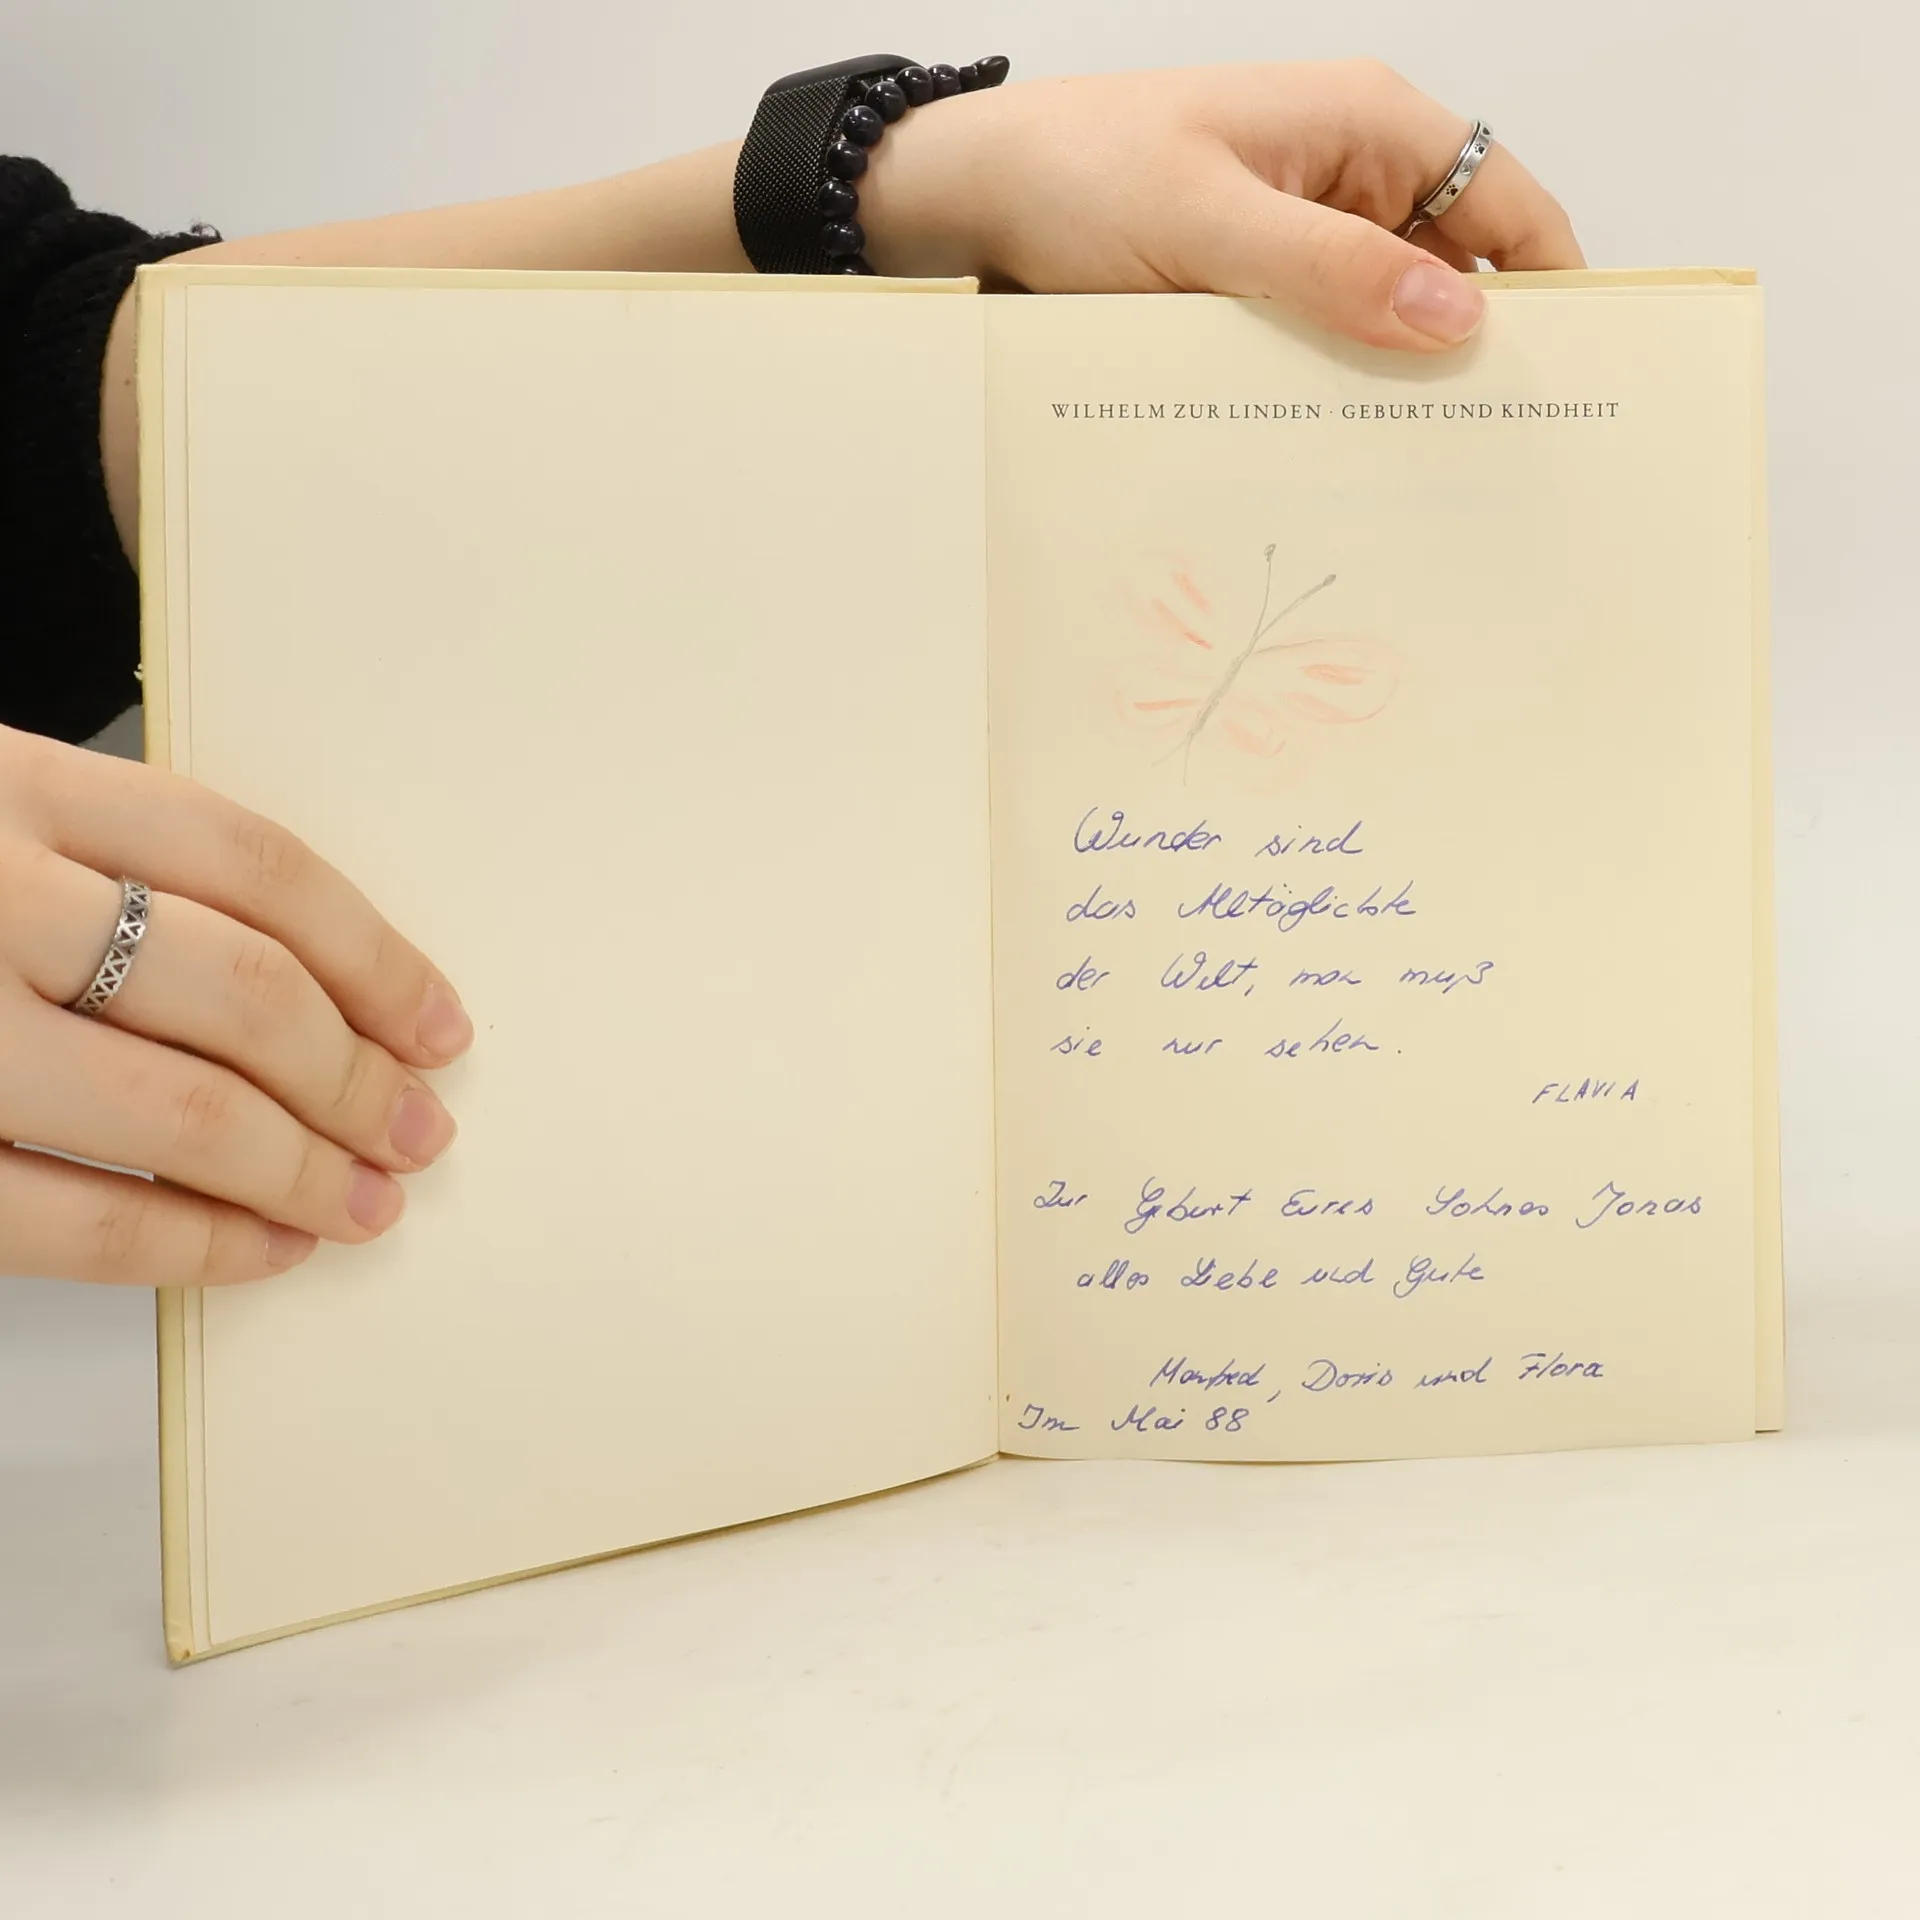 WILHELM ZUR LINDEN · GEBURT UND KINDHEIT
Wunder sind
das Alltäglichste
der Welt, man muß
sie nur sehen.
FLAVIA
Zur Geburt Eures Sohnes Jonas
alles Liebe und Gute
Manfred, Doris und Flora
Im Mai 88